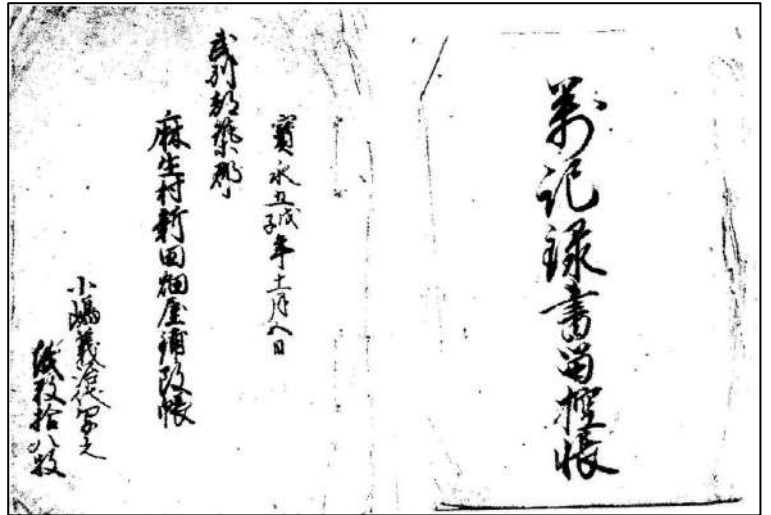 萬記録書留控帳
寳永五戊子年十二月八日
武州都築郡
麻生村新田畑屋鋪改帳
小嶋義治代写之
紙数拾八枚